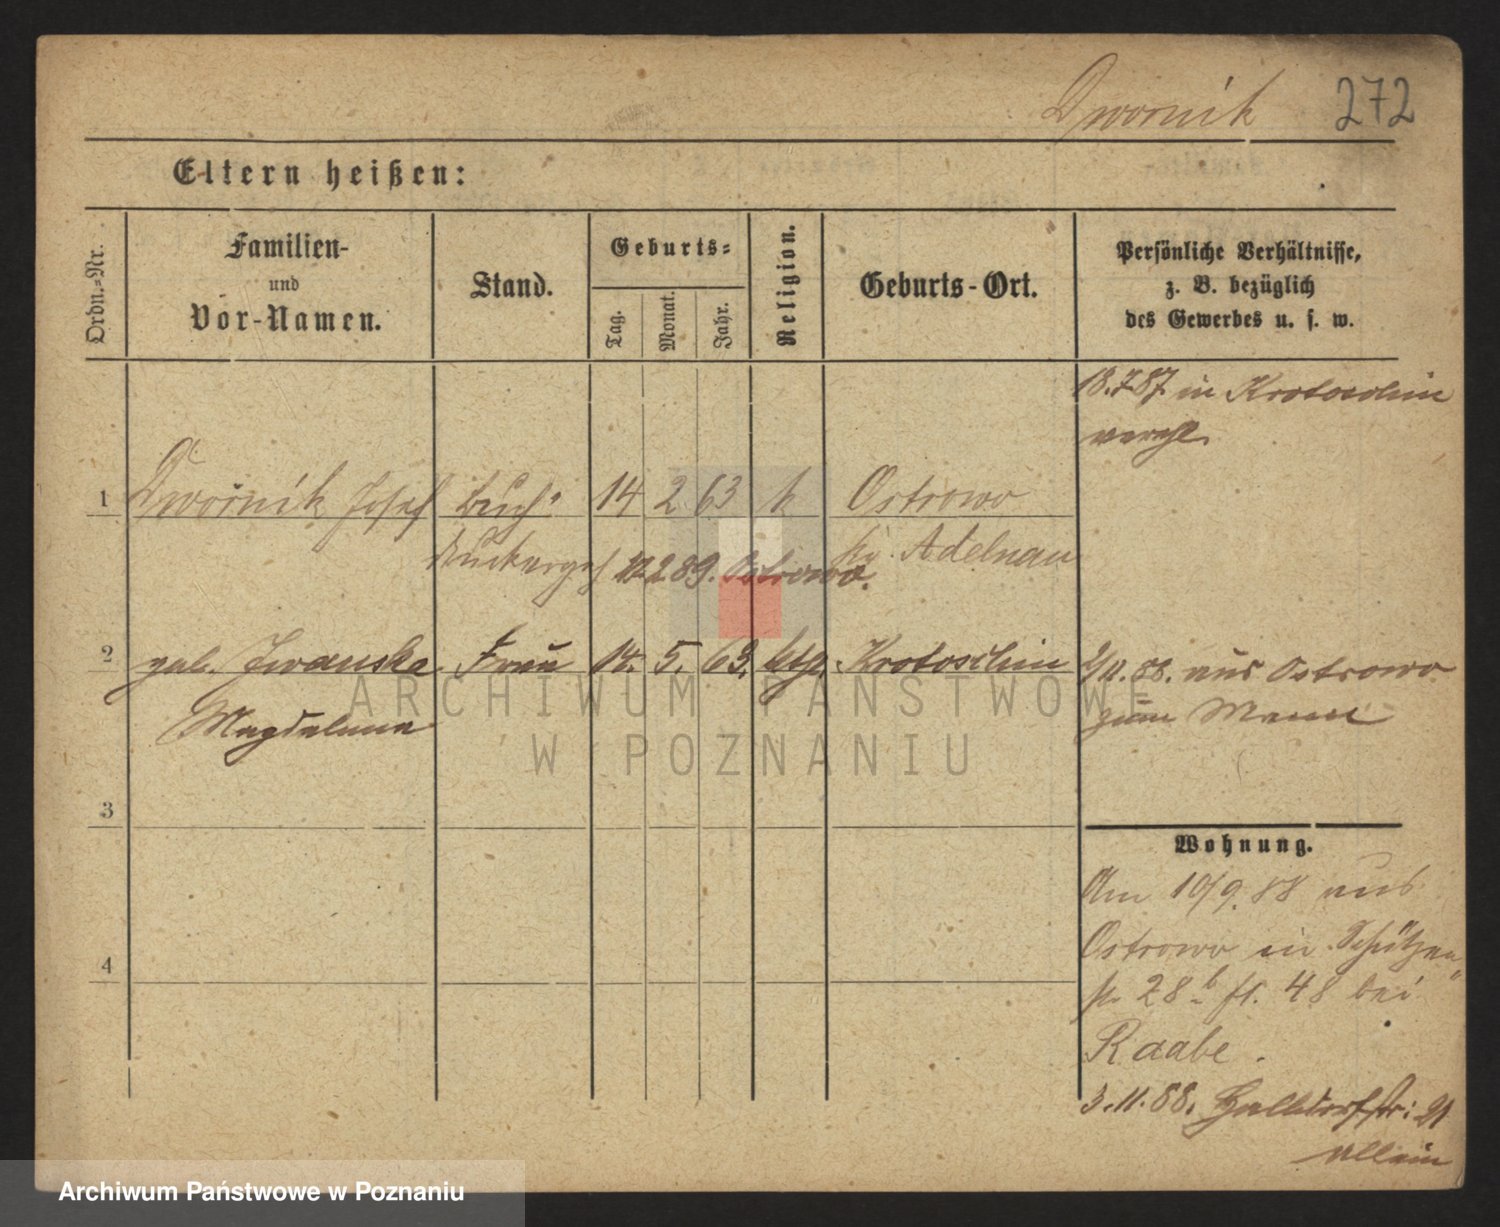 Dwornik 272
Eltern heißen:
Ordn.-Nr.
Familien-
und
Vor-Namen.
Stand.
Geburts-
Tag.
Monat.
Jahr.
Religion.
Geburts-Ort.
Persönliche Verhältnisse,
z. B. bezüglich
des Gewerbes u. s. w.
18.7.87 in Krotoschin
verehl.
1 Dwornik Josef Buch- 14 2 63 k Ostrowo
druckergeh Kr. Adelnau
12 2 89. Ostrowo.
2 geb. Iwanska Frau 14. 5. 63. kth. Krotoschin
Magdalena
2/11. 88. aus Ostrowo
zum Mann
3
4
Wohnung.
Am 10/9. 88 aus
Ostrowo in Schützen
str 28b ft. 48 bei
Raabe.
3.11.88. Halbdorfstr: 21
allein
ARCHIWUM PAŃSTWOWE
W POZNANIU
Archiwum Państwowe w Poznaniu